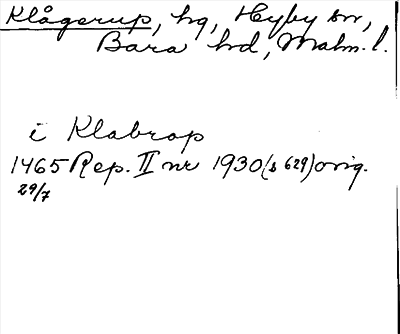 Klågerup, hg, Hyby sn,
Bara hd, Malm. l.
i Klabrop
1465 Rep. II nr 1930 (s 629) orig.
29/7